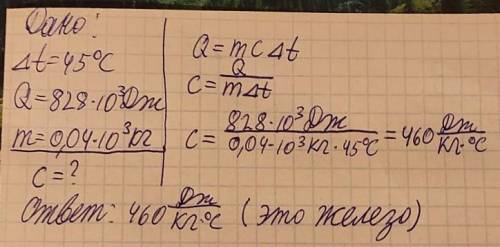 Дано:
Δt=45°C
Q=828·10³Дж
m=0,04·10³кг
C=?
Q=mcΔt
C=Q/mΔt
C=828·10³Дж/0,04·10³кг·45°C=460 Дж/кг·°C
Ответ: 460 Дж/кг·°C (это железо)